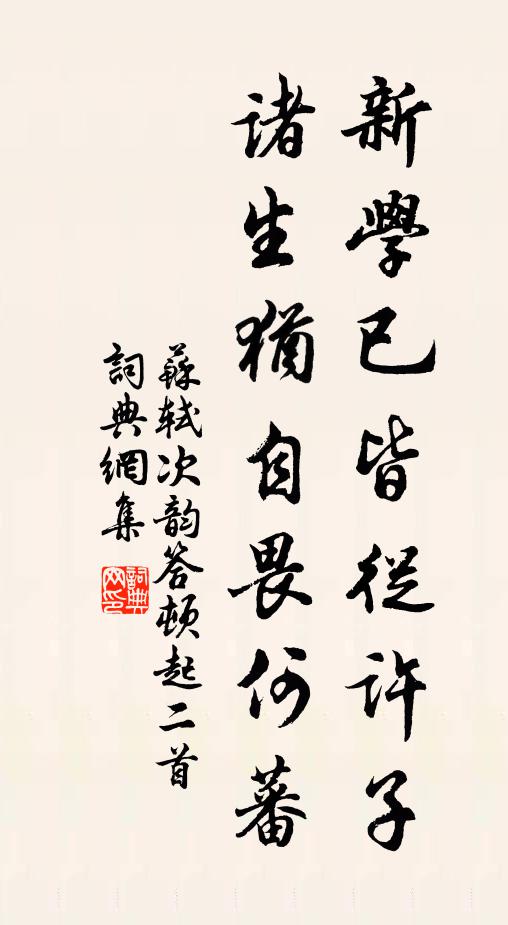 新學已皆從許子
諸生猶自畏何蕃
蘇軾次韵答頓起二首
詞典網集
詞典网印